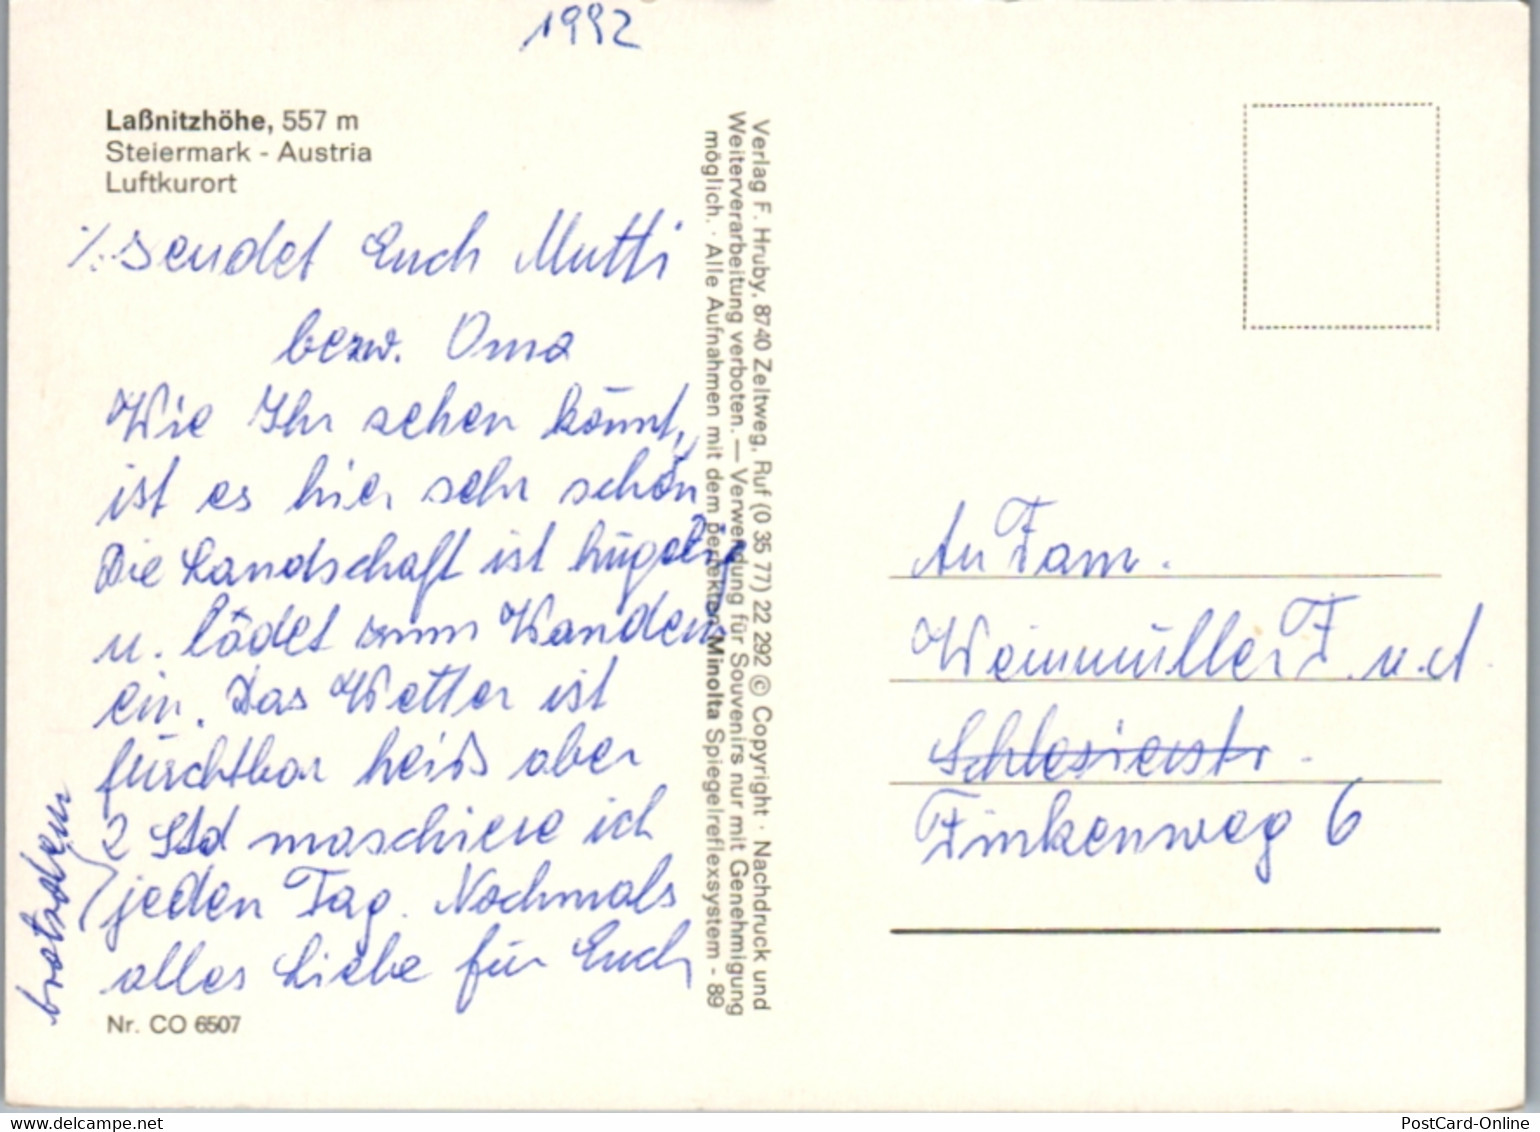 1992
Laßnitzhöhe, 557 m
Steiermark - Austria
Luftkurort
·/. sendet Euch Mutti
bezw. Oma
Wie Ihr sehen könnt,
ist es hier sehr schön
Die Landschaft ist hügelig
u. lädet zum Wandern
ein. Das Wetter ist
fürchtbar heiß aber
2 Std maschiere ich
jeden Tag. Nochmals
alles Liebe für Euch
trotzdem
Nr. CO 6507
Verlag F. Hruby, 8740 Zeltweg, Ruf (0 35 77) 22 292 © Copyright · Nachdruck und
Weiterverarbeitung verboten. — Verwendung für Souvenirs nur mit Genehmigung
möglich. · Alle Aufnahmen mit dem perfekten Minolta Spiegelreflexsystem - 89
An Fam.
Weinmüller F. u.
Schlesierstr.
Finkenweg 6
www.delcampe.net
PostCard-Online